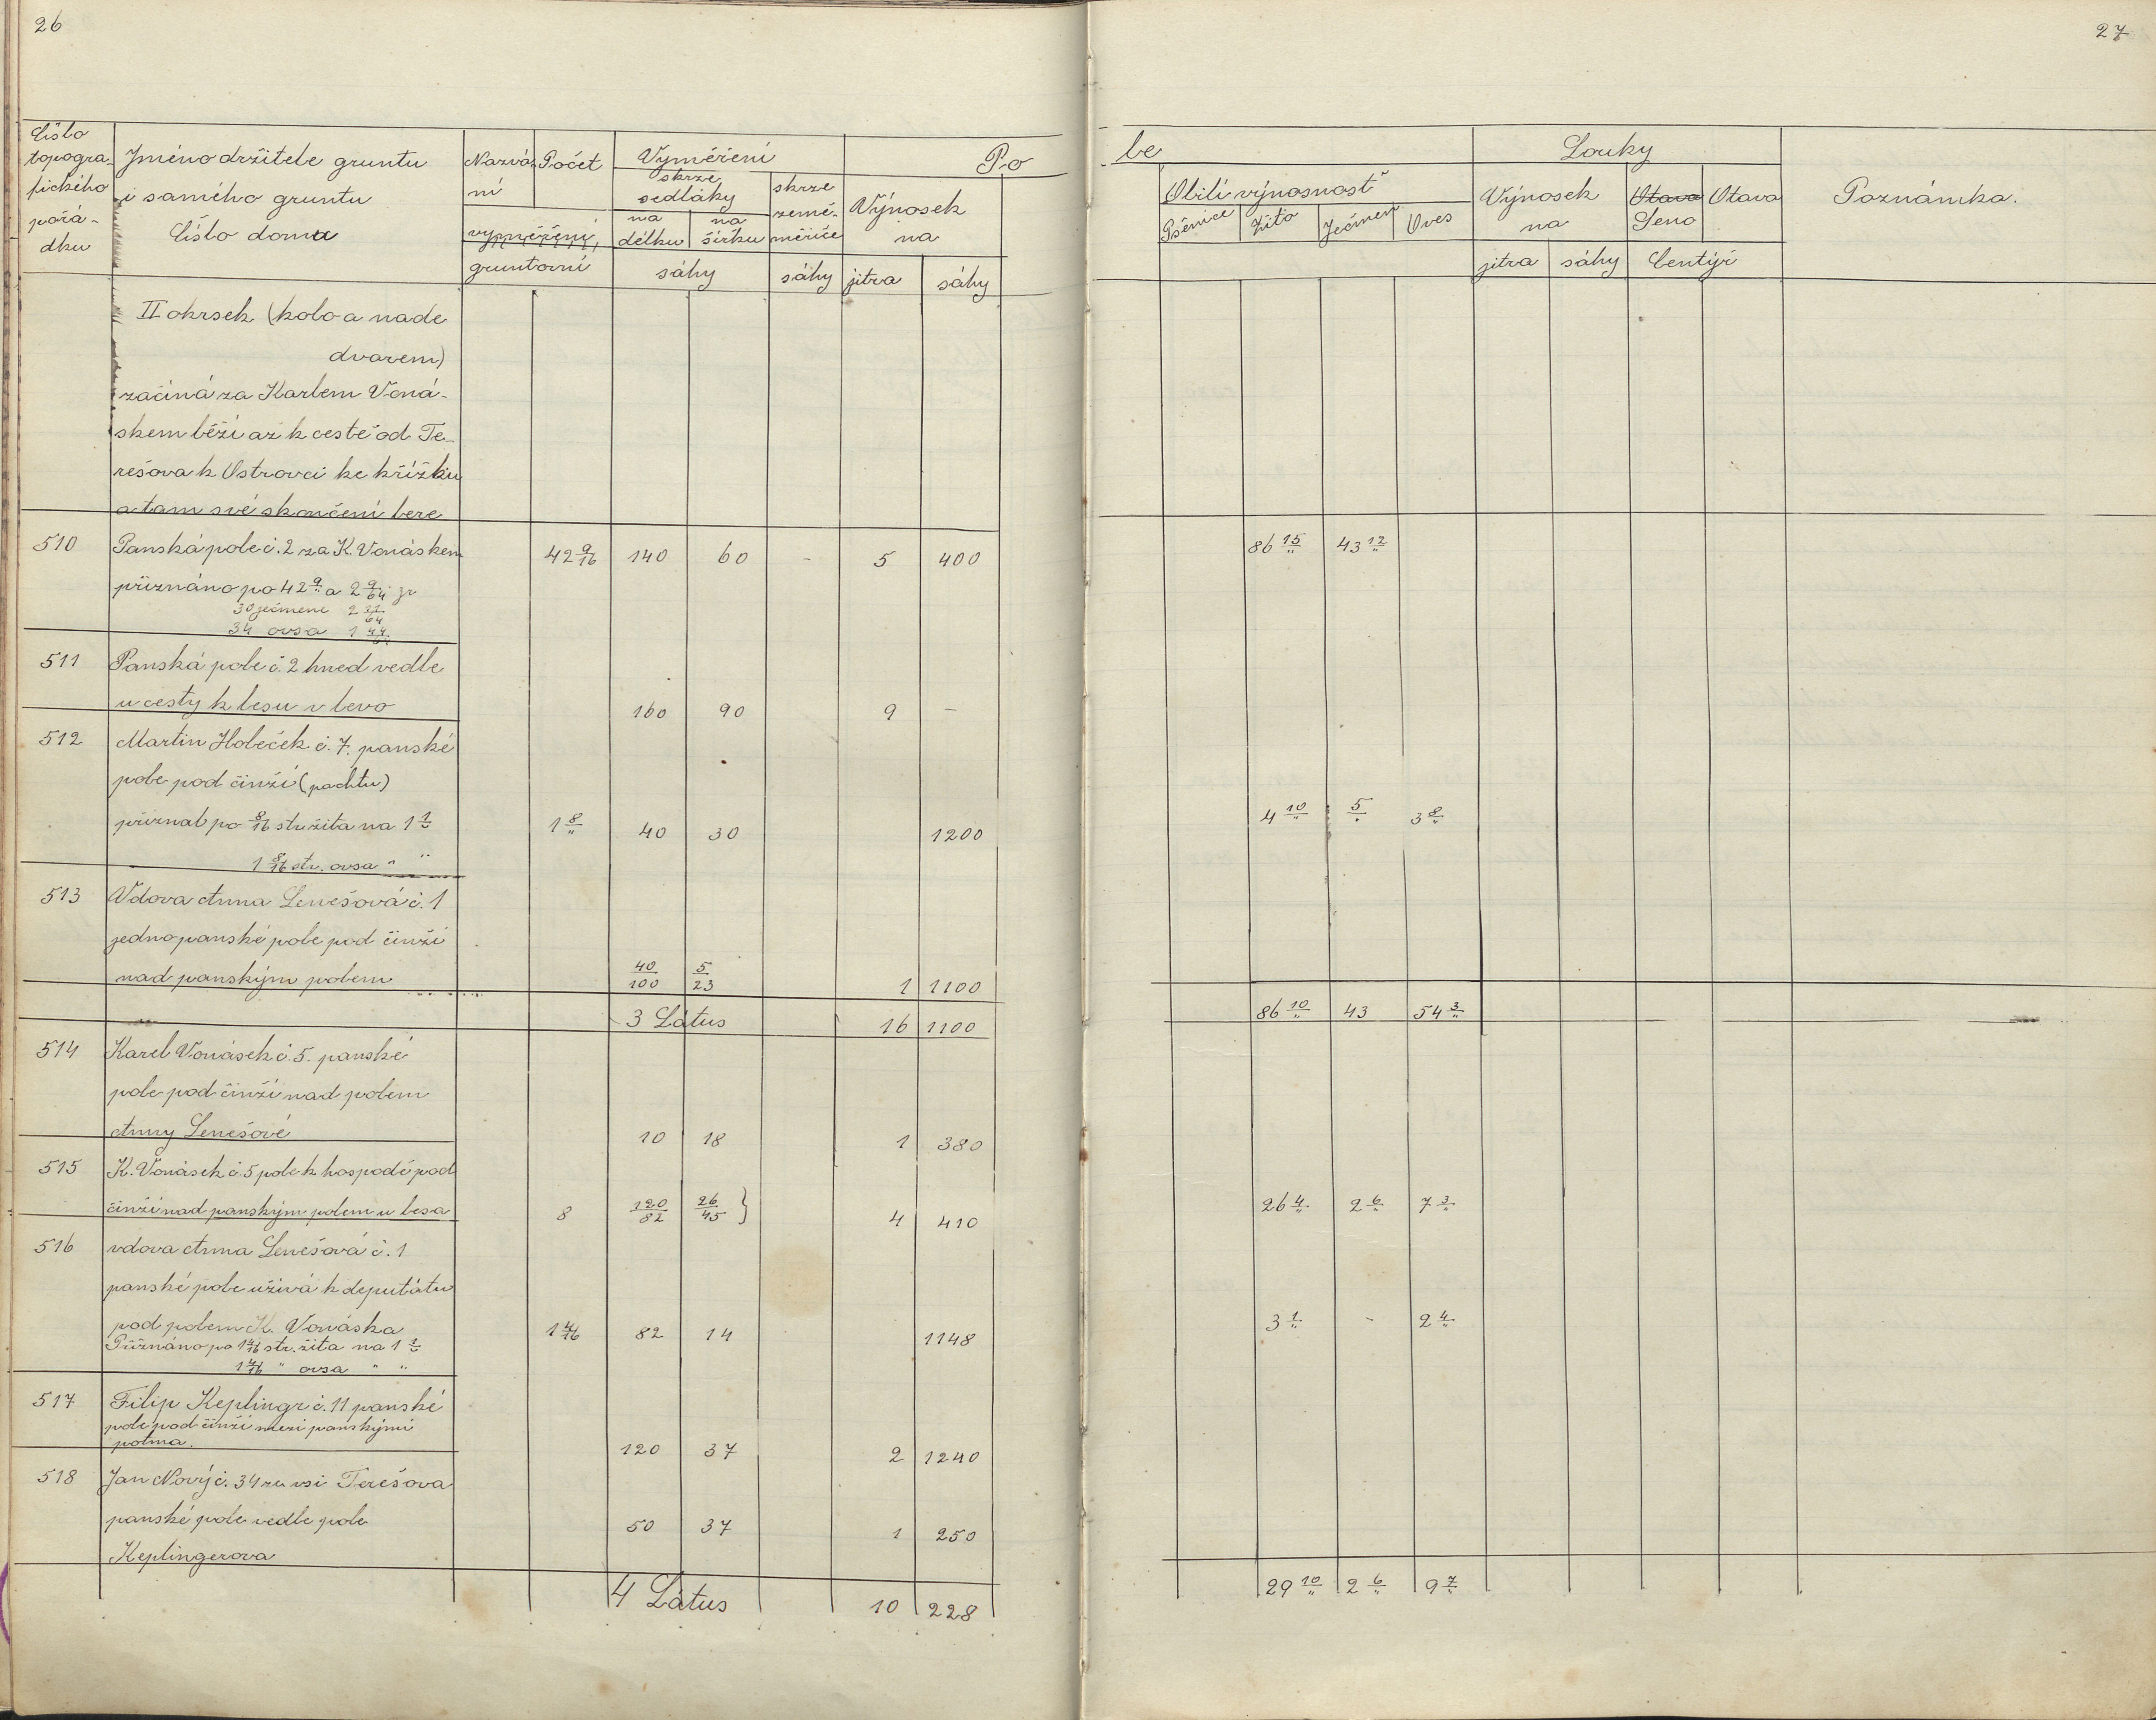 26
27
Číslo topogra-fického pořá-dku | Jméno držitele gruntu i samého gruntu Číslo domu | Nazvá-ní gruntovní | Počet | Vyměření skrze sedláky na délku na šířku sáhy | skrze země-měřiče sáhy | Po
Výnosek na jitra sáhy
le | Obilí výnosnost Pšenice Žito Ječmen Oves | Louky Výnosek na jitra sáhy | Otava Seno Otava Centýř | Poznámka.
II okrsek (kolo a nade
dvorem)
začíná za Karlem Voná-
skem běží až k cestě od Te-
rešova k Ostrovci ke křížku
a tam své skončení bere
510 Panská pole č. 2 za K. Vonáskem 42 9/16 140 60 - 5 400 86 15/" 43 12/"
přiznáno po 42 9/" a 2 9/64 žr
30 ječmene 2 22/64
34 ovsa 1 44/
511 Panská pole č. 2 hned vedle
u cesty k lesu v levo 160 90 9 —
512 Martin Holeček č. 7. panské
pole pod činží (pachtu)
přiznal po 8/16 str. žita na 1 1/" 1 8/" 40 30 1200 4 10/" 5/" 3 8/"
1 8/16 str. ovsa " "
513 Vdova Anna Lenešová č. 1
jedno panské pole pod činží
nad panským polem 40/100 5/23 1 1100
3 Látus 16 1100 86 10/" 43 54 3/"
514 Karel Vonásek č. 5. panské
pole pod činží nad polem
Anny Lenešové 10 18 1 380
515 K. Vonásek č. 5 pole k hospodě pod
činží nad panským polem u lesa 8 120/82 26/45 } 4 410 26 4/" 2 6/" 7 3/"
516 vdova Anna Lenešová č. 1
panské pole užívá k deputátu
pod polem K. Vonáska 1 4/16 82 14 1148 3 1/" - 2 4/"
Přiznáno po 1 4/16 str. žita na 1 1/"
1 4/16 " ovsa " "
517 Filip Keplingr č. 11 panské
pole pod činží mezi panskými
polma. 120 37 2 1240
518 Jan Nový č. 34 ze vsi Terešova
panské pole vedle pole 50 37 1 250
Keplingerova
4 Látus 10 228 29 10/" 2 6/" 9 7/"